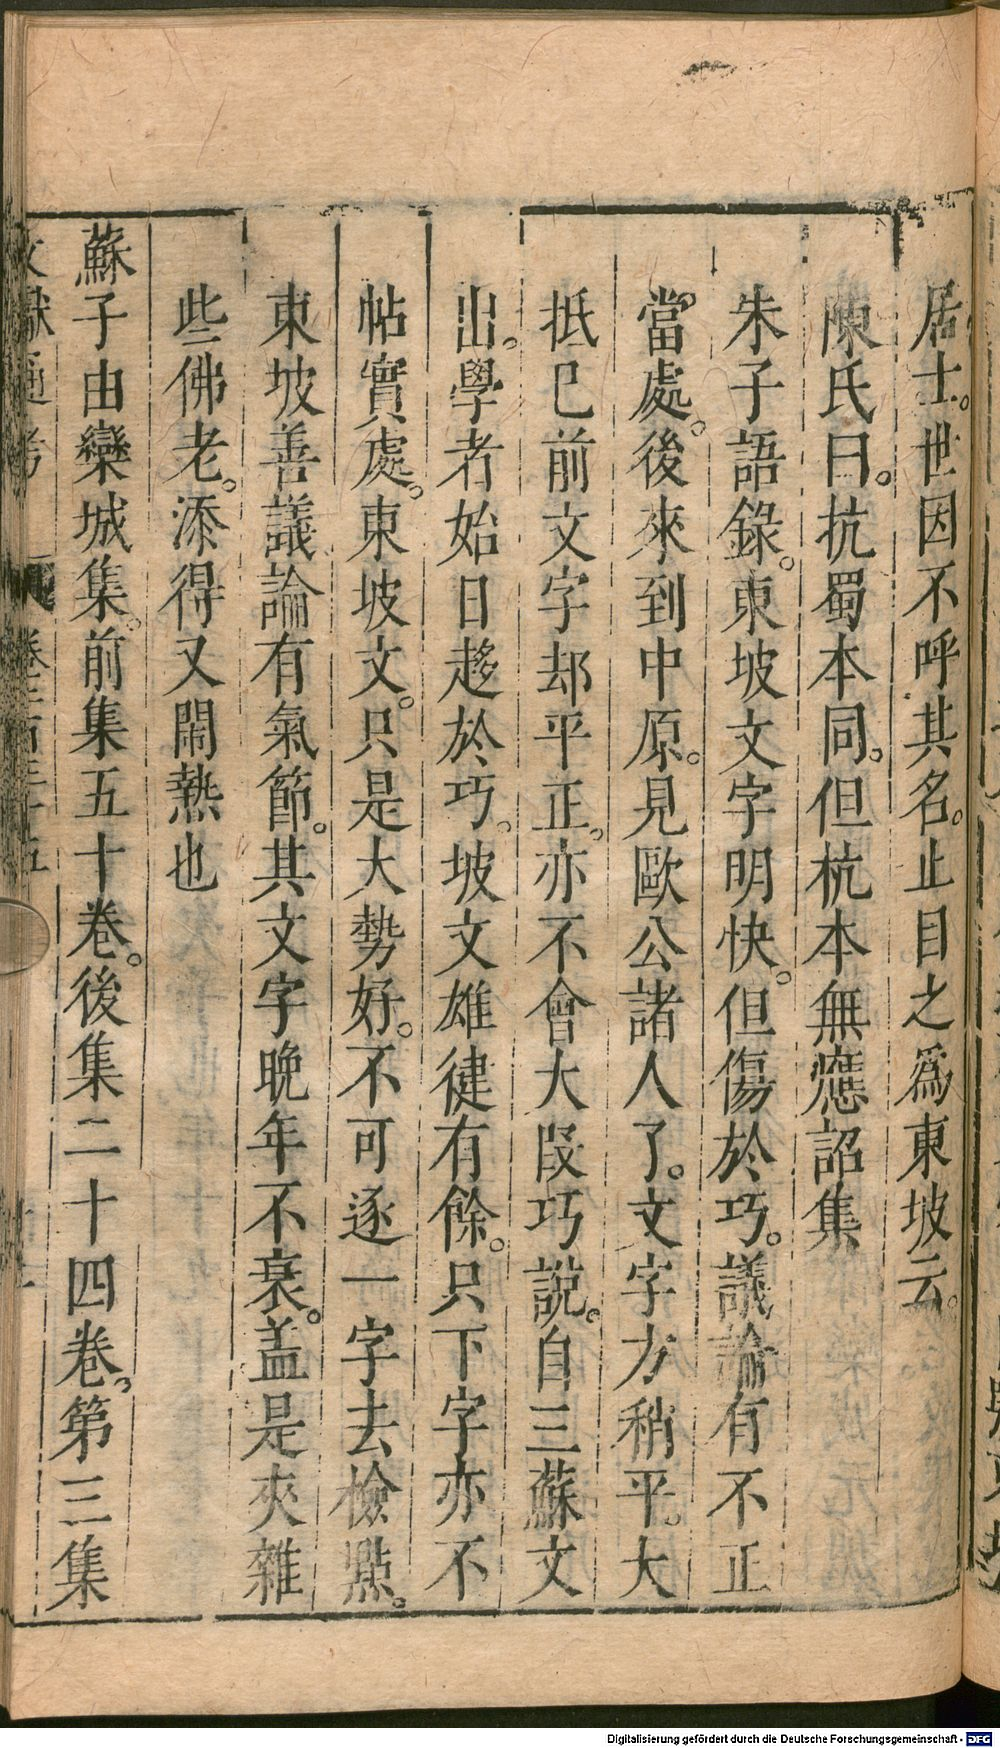 居士。世因不呼其名。止目之爲東坡云。
陳氏曰。抗蜀本同。但杭本無應詔集
朱子語錄。東坡文字明快。但傷於巧。議論有不正
當處。後來到中原。見歐公諸人了。文字方稍平。大
抵已前文字却平正。亦不會大段巧說。自三蘇文
出。學者始日趍於巧。坡文雄健有餘。只下字亦不
帖實處。東坡文。只是大勢好。不可逐一字去檢點。
東坡善議論有氣節。其文字晚年不衰。盖是夾雜
些佛老。添得又閙熱也
蘇子由欒城集。前集五十卷。後集二十四卷。第三集
文獻通考 卷二百三十五
Digitalisierung gefördert durch die Deutsche Forschungsgemeinschaft - DFG